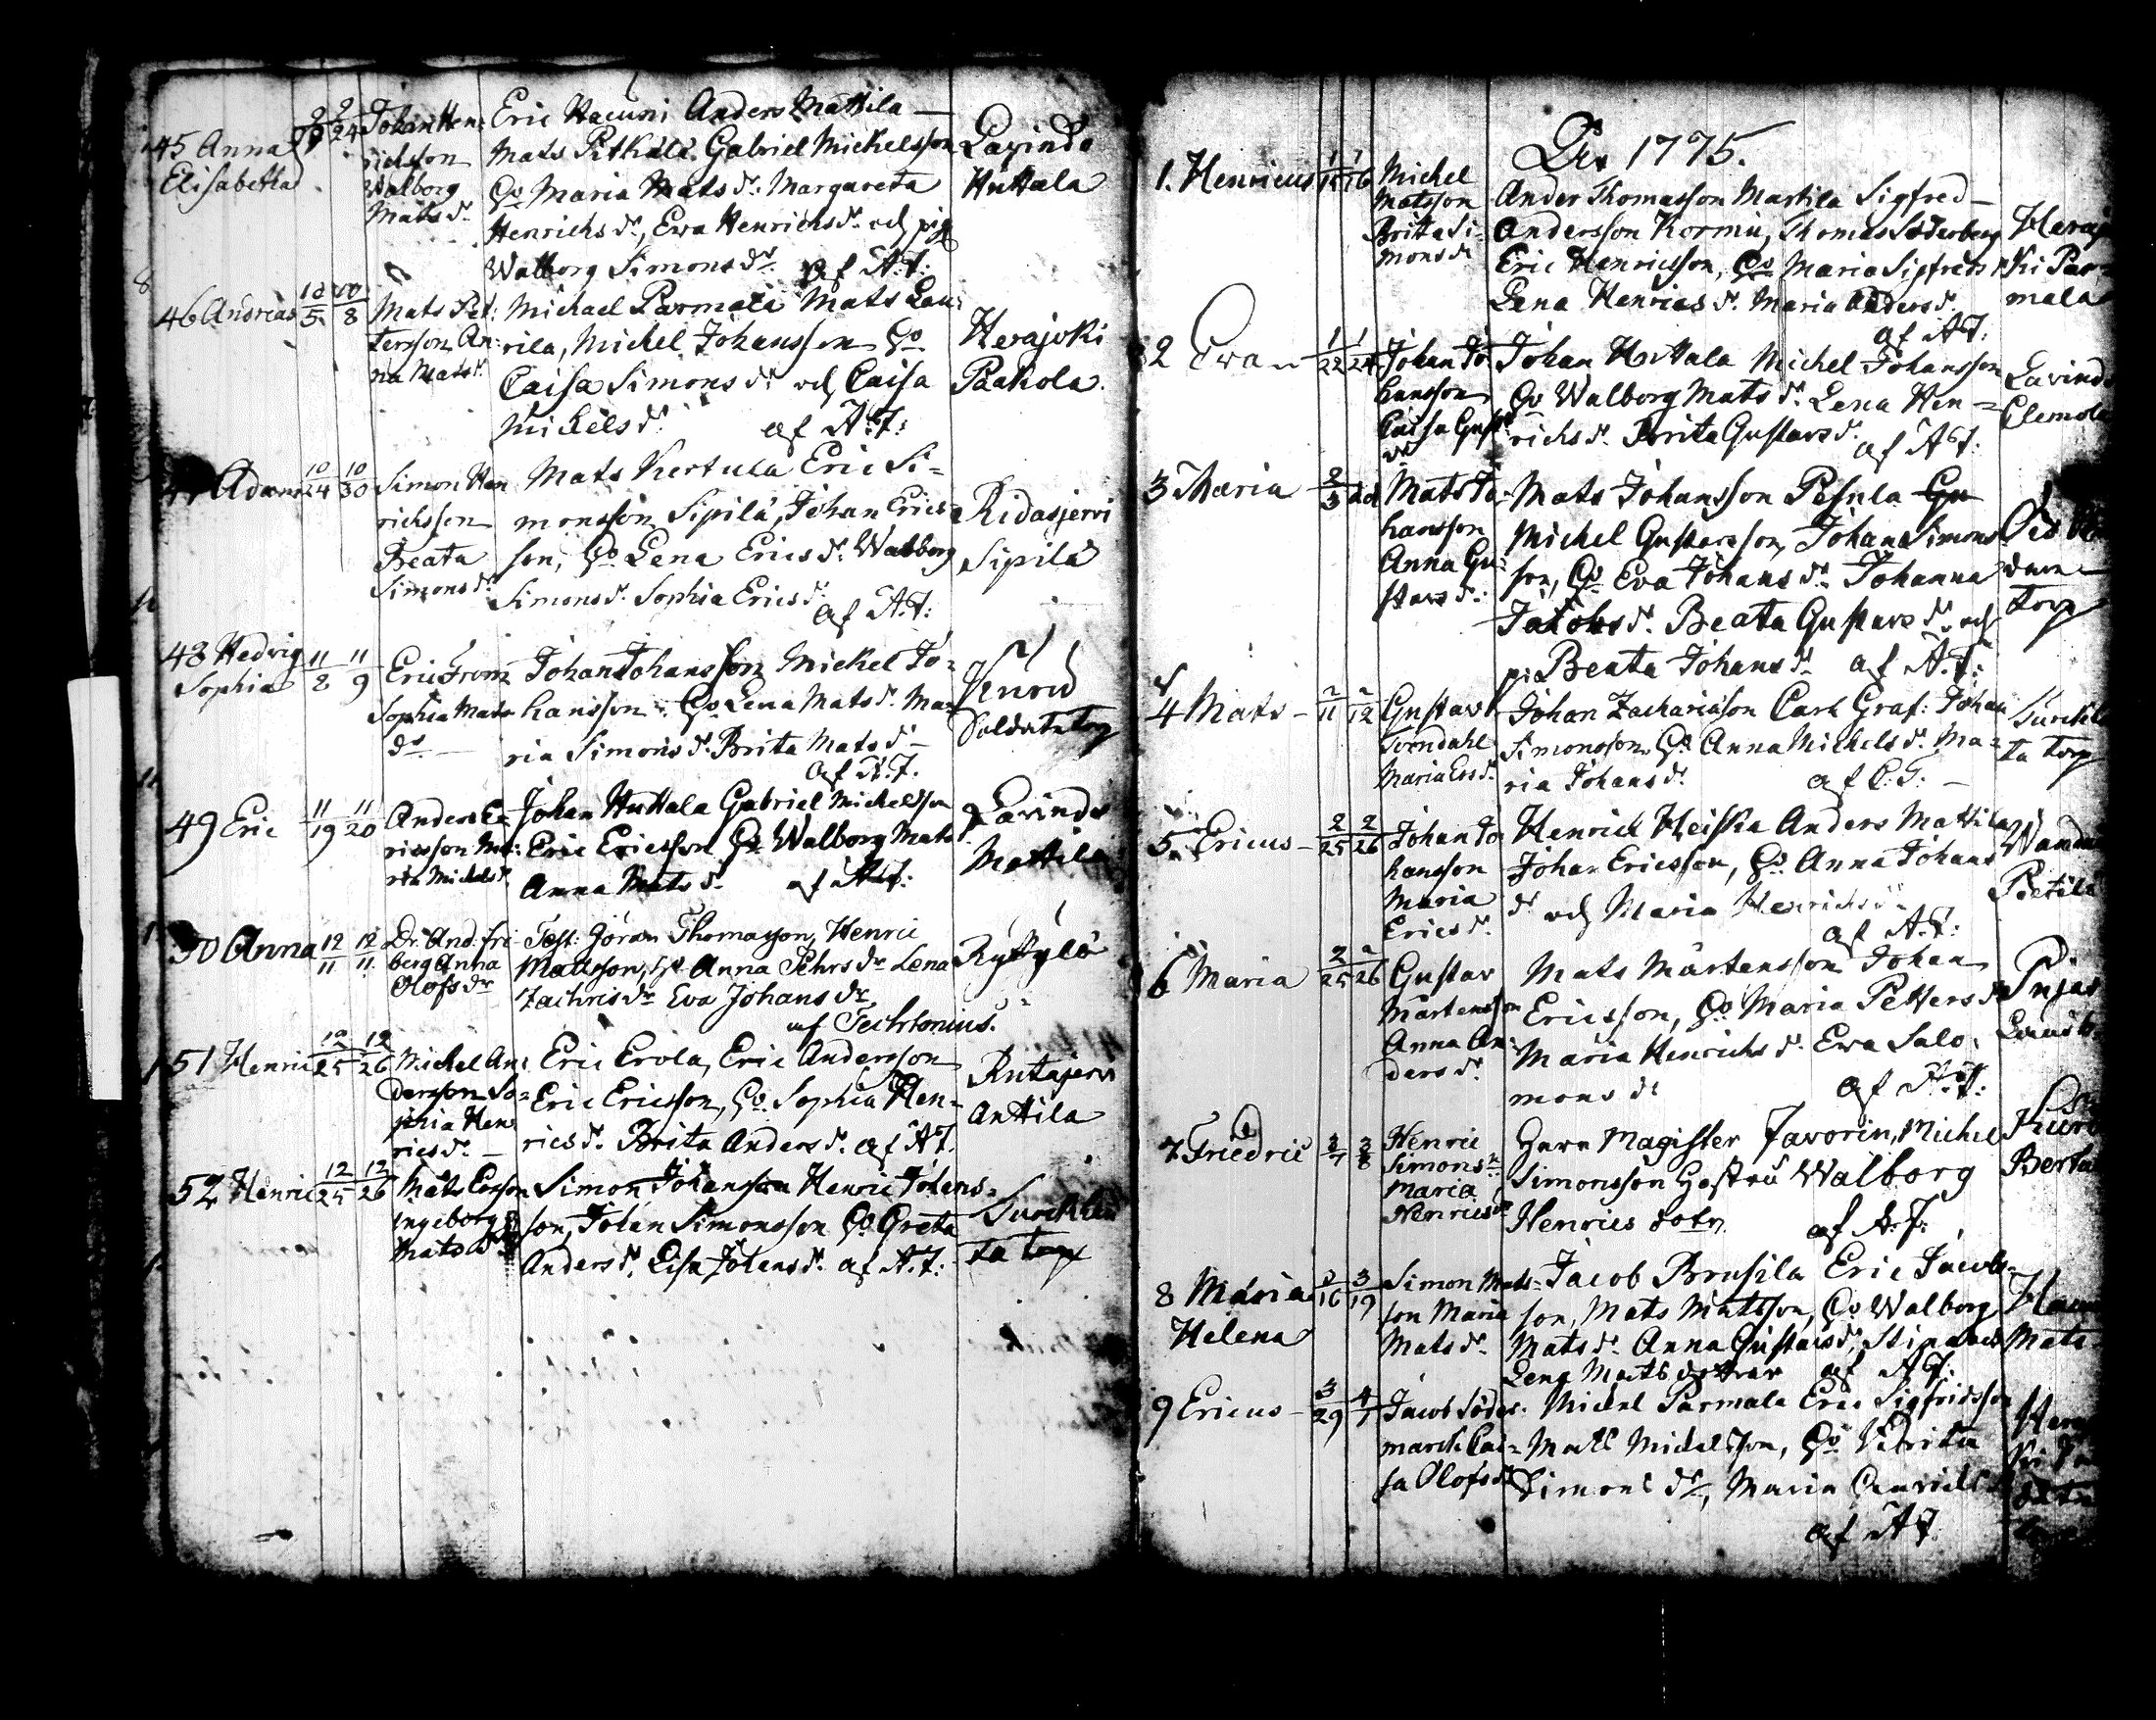 45 Anna
Elisabetha
9/24
Johan Hen:
richsson
Walborg
Mats dr
Eric Hacuni Anders Mattila
Mats Pitkälä Gabriel Mickelsson
Qv Maria Mats dr. Margareta
Henrichs dr, Ewa Henrichs dr och pig
Walborg Simons dr. af A.T:
Lavinda
Huttala
46 Andreas 10/5 10/8
Mats Pet:
tersson An:
na Mats dr
Michael Parmala Mats Lau:
rila, Michel Johansson Qv
Caisa Simons dr och Caisa
Michels dr. af A:T:
Herajoki
Paakola
Adam 10/24 10/30
Simon Hen
richsson
Beata
Simons dr
Mats Kertula Eric Si=
monsson Sipilä, Johan Erics
son, Qv Lena Erics dr. Walborg
Simons dr. Sophia Erics dr.
af A.T:
Ridasjervi
Sipilä
48 Hedvig
Sophia 11/8 11/9
Eric From
Sophia Mats
dr
Johan Johansson Mickel Jo=
hansson. Qv Lena Mats dr. Ma=
ria Simons dr. Brita Mats dr
af A.T.
Soldate torp
49 Eric 11/19 11/20
Anders E
ricsson Ma:
ria Michels dr
Johan Huttala Gabriel Michelsson
Eric Ericsson Qv Walborg Mats
Anna Mats dr. af A.T:
Lavinda
Mattila
50 Anna 12/11 12/11
Dr. And. Fri
berg Anna
Olofs dr
Test: Göran Thomasson, Henric
Mattsson, Hu Anna Pehrs dr Lena
Zachris dr Eva Johans dr.
af Techtonius.
Ryttylä
51 Henric 12/25 12/26
Michel An:
dersson So=
phia Hen
rics dr.
Eric Erola, Eric Andersson
Eric Ericsson, Qv. Sophia Hen=
rics dr. Brita Anders dr. af A.T.
Rutajervi
Anttila
52 Henric 12/25 12/26
Mats Ersson
Ingeborg
Mats dr
Simon Johansson Henric Johans=
son, Johan Simonsson Qv Greta
Anders dr. Lisa Johans dr. af A.T:
Surckheu
ta torp
Ao 1775.
1. Henricus 1/15 1/16
Michel
Matsson
Brita Si=
mons dr
Ander Thomasson Markila Sigfred
Andersson Kormu, Thomas Söderberg
Eric Henricsson, Qv Maria Sigfreds
Lena Henrics dr. Maria Anders dr.
af AT:
Heraj
ki Par=
mala
2 Eva 1/22 1/24
Johan Jo
hansson
Caisa Gust
dr
Johan Huttala Michel Johansson
Qv Walborg Mats dr. Lena Hen=
richs dr. Brita Gustavs dr.
af AT.
Lavinda
Clemola
3 Maria 2/3 dd
Mats Jo
hansson
Anna Gu:
stavs dr:
Mats Johansson Pesula
Michel Gustavsson, Johan Simons
son, Qv Eva Johans dr Johanna
Jakobs dr. Beata Gustavs dr. och
pi Beata Johans dr. af A.T:
torp
4 Mats 2/11 2/12
Gustav
Svendahl
Maria Ers dr.
Johan Zachariasson Carl Graf: Johan
Simonsson, Qv Anna Michels dr. Ma=
ria Johans dr. af C.T:
Surckheu
ta torp
5. Ericus 2/25 2/26
Johan Jo
hansson
Maria
Erics dr.
Henrick Heiska Anders Mattila
Johan Ericsson, Qv. Anna Johans
dr och Maria Henrichs dr
af A.T:
Wanda
Pietilä
6 Maria 2/25 2/26
Gustav
Mårtensson
Anna An:
ders dr.
Mats Mårtensson Johan
Ericsson, Qv Maria Petters dr
Maria Henrichs dr. Ewa Salo:
mons dr
af A.T:
Pujas
7 Friedric 3/7 3/8
Henric
Simons
Maria
Henrics dr
Herr Magister Javorin, Michel
Simonsson Hustru Walborg
Henrics dotr.
af A.T:
8 Maria
Helena 3/16 3/19
Simon Mats=
son Maria
Mats dr.
Jacob Brusila Eric Jacobs=
son, Mats Matsson, Qv Walborg
Mats dr. Anna Gustavs dr, Stina och
Lena Mats dottrar af A.T:
Mats
9 Ericus 3/29 4/1
Jacob Söder:
marck Cai=
sa Olofs dr
Michel Parmala Eric Sigfridsson
Matts Michelsson, Qv Vibrita
Simons dr, Maria Davids
af AT.